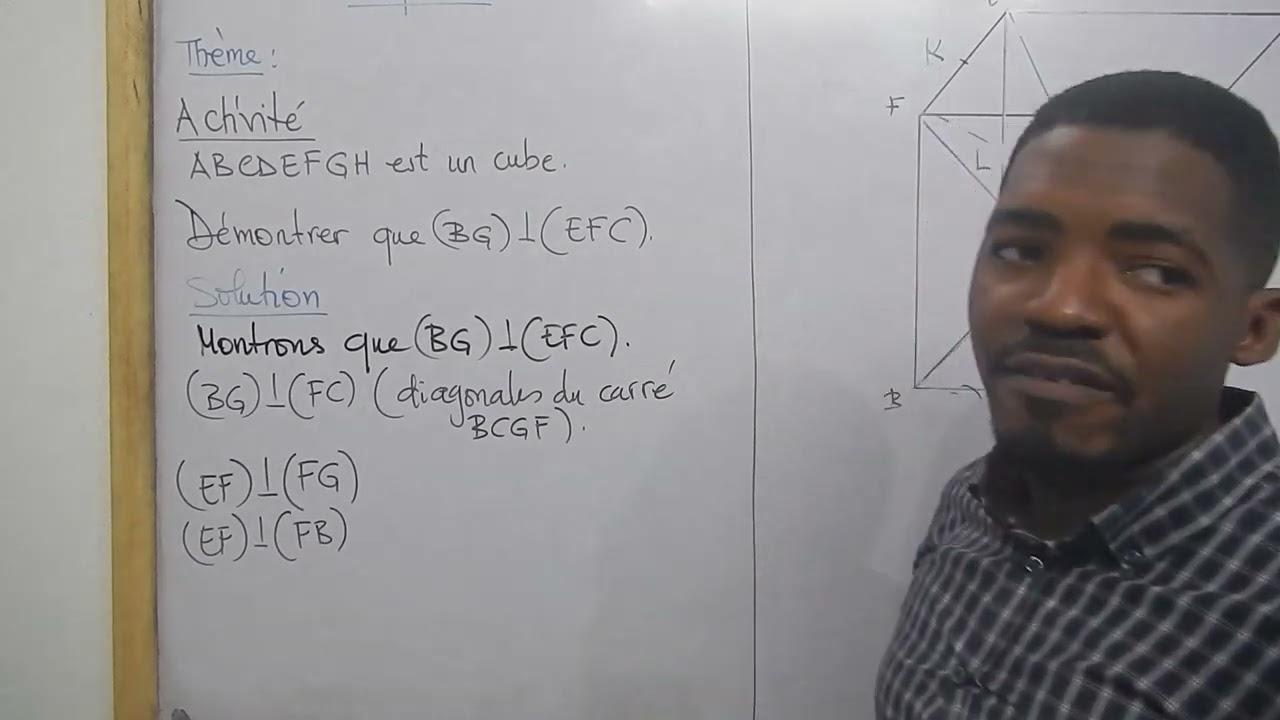 Thème :
Activité
ABCDEFGH est un cube.
Démontrer que (BG)⊥(EFC).
Solution
Montrons que (BG)⊥(EFC).
(BG)⊥(FC) (diagonales du carré
BCGF).
(EF)⊥(FG)
(EF)⊥(FB)
K
F
L
B